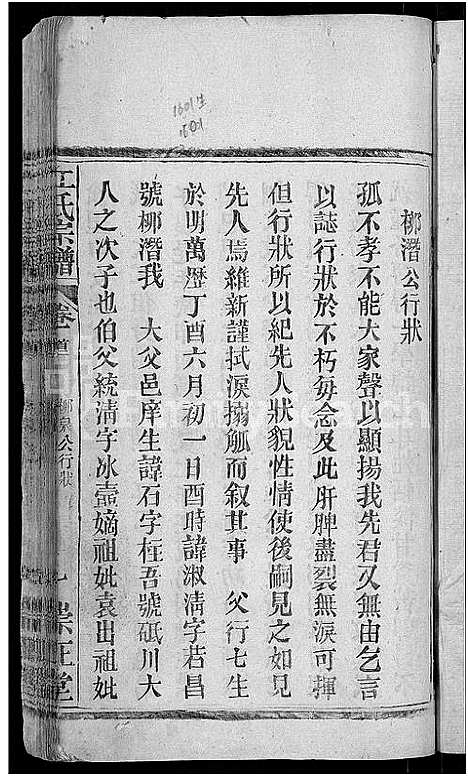 柳潛公行狀
孤不孝不能大家聲以顯揚我先君又無由乞言
以誌行狀於不朽每念及此肝脾盡裂無淚可揮
但行狀所以紀先人狀貌性情使後嗣見之如見
先人焉維新謹拭淚搦觚而叙其事 父行七生
於明萬歷丁酉六月初一日酉時諱淑淸字若昌
號柳潛我 大父邑庠生諱石字枉吾號砥川大
人之次子也伯父統淸字冰壼嫡祖妣袁出祖妣
江氏宗譜 卷首 柳泉公行狀 七 崇正堂